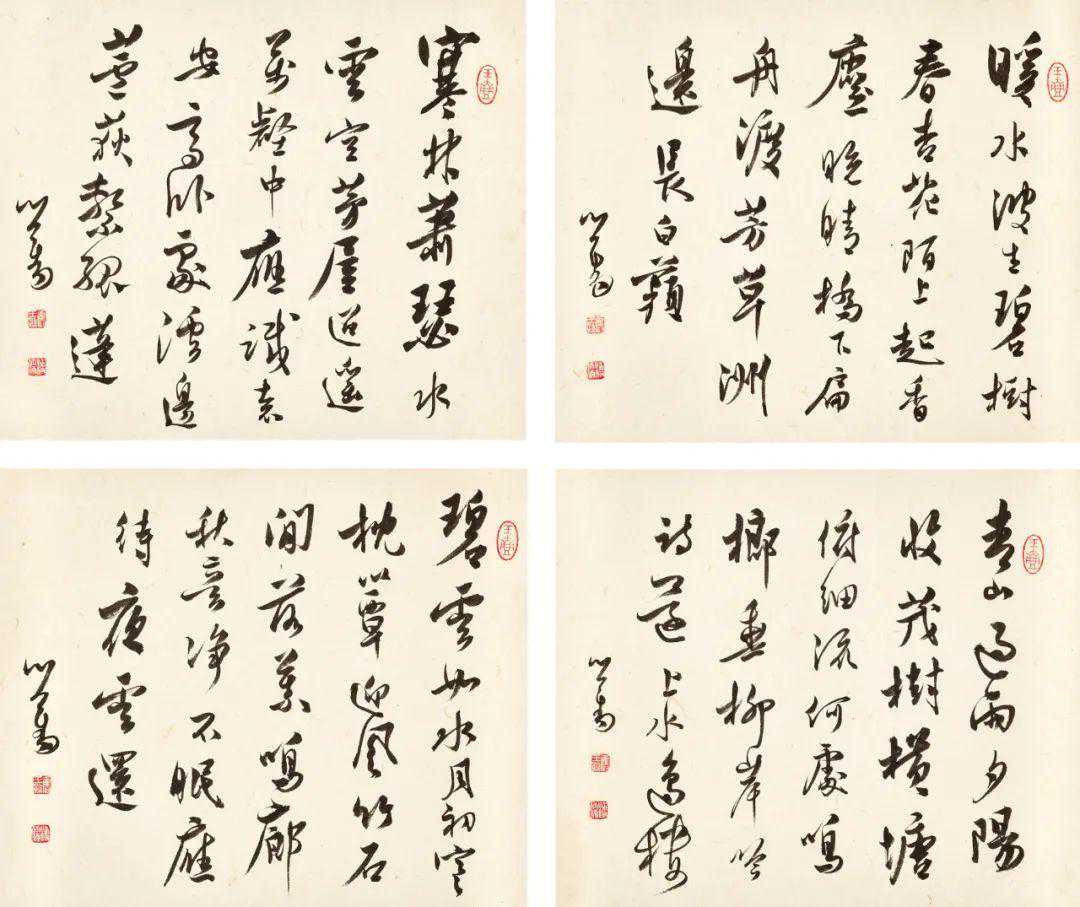 暖水波生碧樹
春杏花陌上起香
塵晚晴橋下扁
舟渡芳草洲
邊長白蘋
心畬
寒林蕭瑟水
雲空茅屋逍遙
萬壑中應識袁
安高臥處溪邊
蘆荻繫孤蓬
心畬
青山過雨夕陽
收茂樹橫塘
俯細流何處鳴
榔垂柳岸吟
詩還上水邊樓
心畬
碧雲如水月初寒
枕簟迎風竹石
間落葉鳴廊
秋意淨不眠應
待夜雲還
心畬